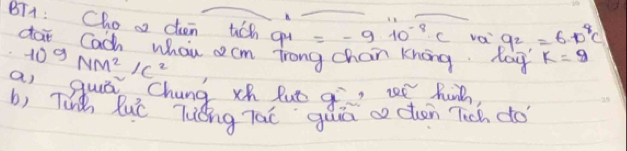 BT1: Cho 2 điện tích q1 = -9.10⁻⁸C và q2 = 6.10⁸C
đặt cách nhau 2cm trong chân không. lấy K = 9
.10⁹ NM²/C²
a, giữa chúng xh lực gì, vẽ hình,
b, Tính lực Tương Tác giữa 2 điện Tích đó